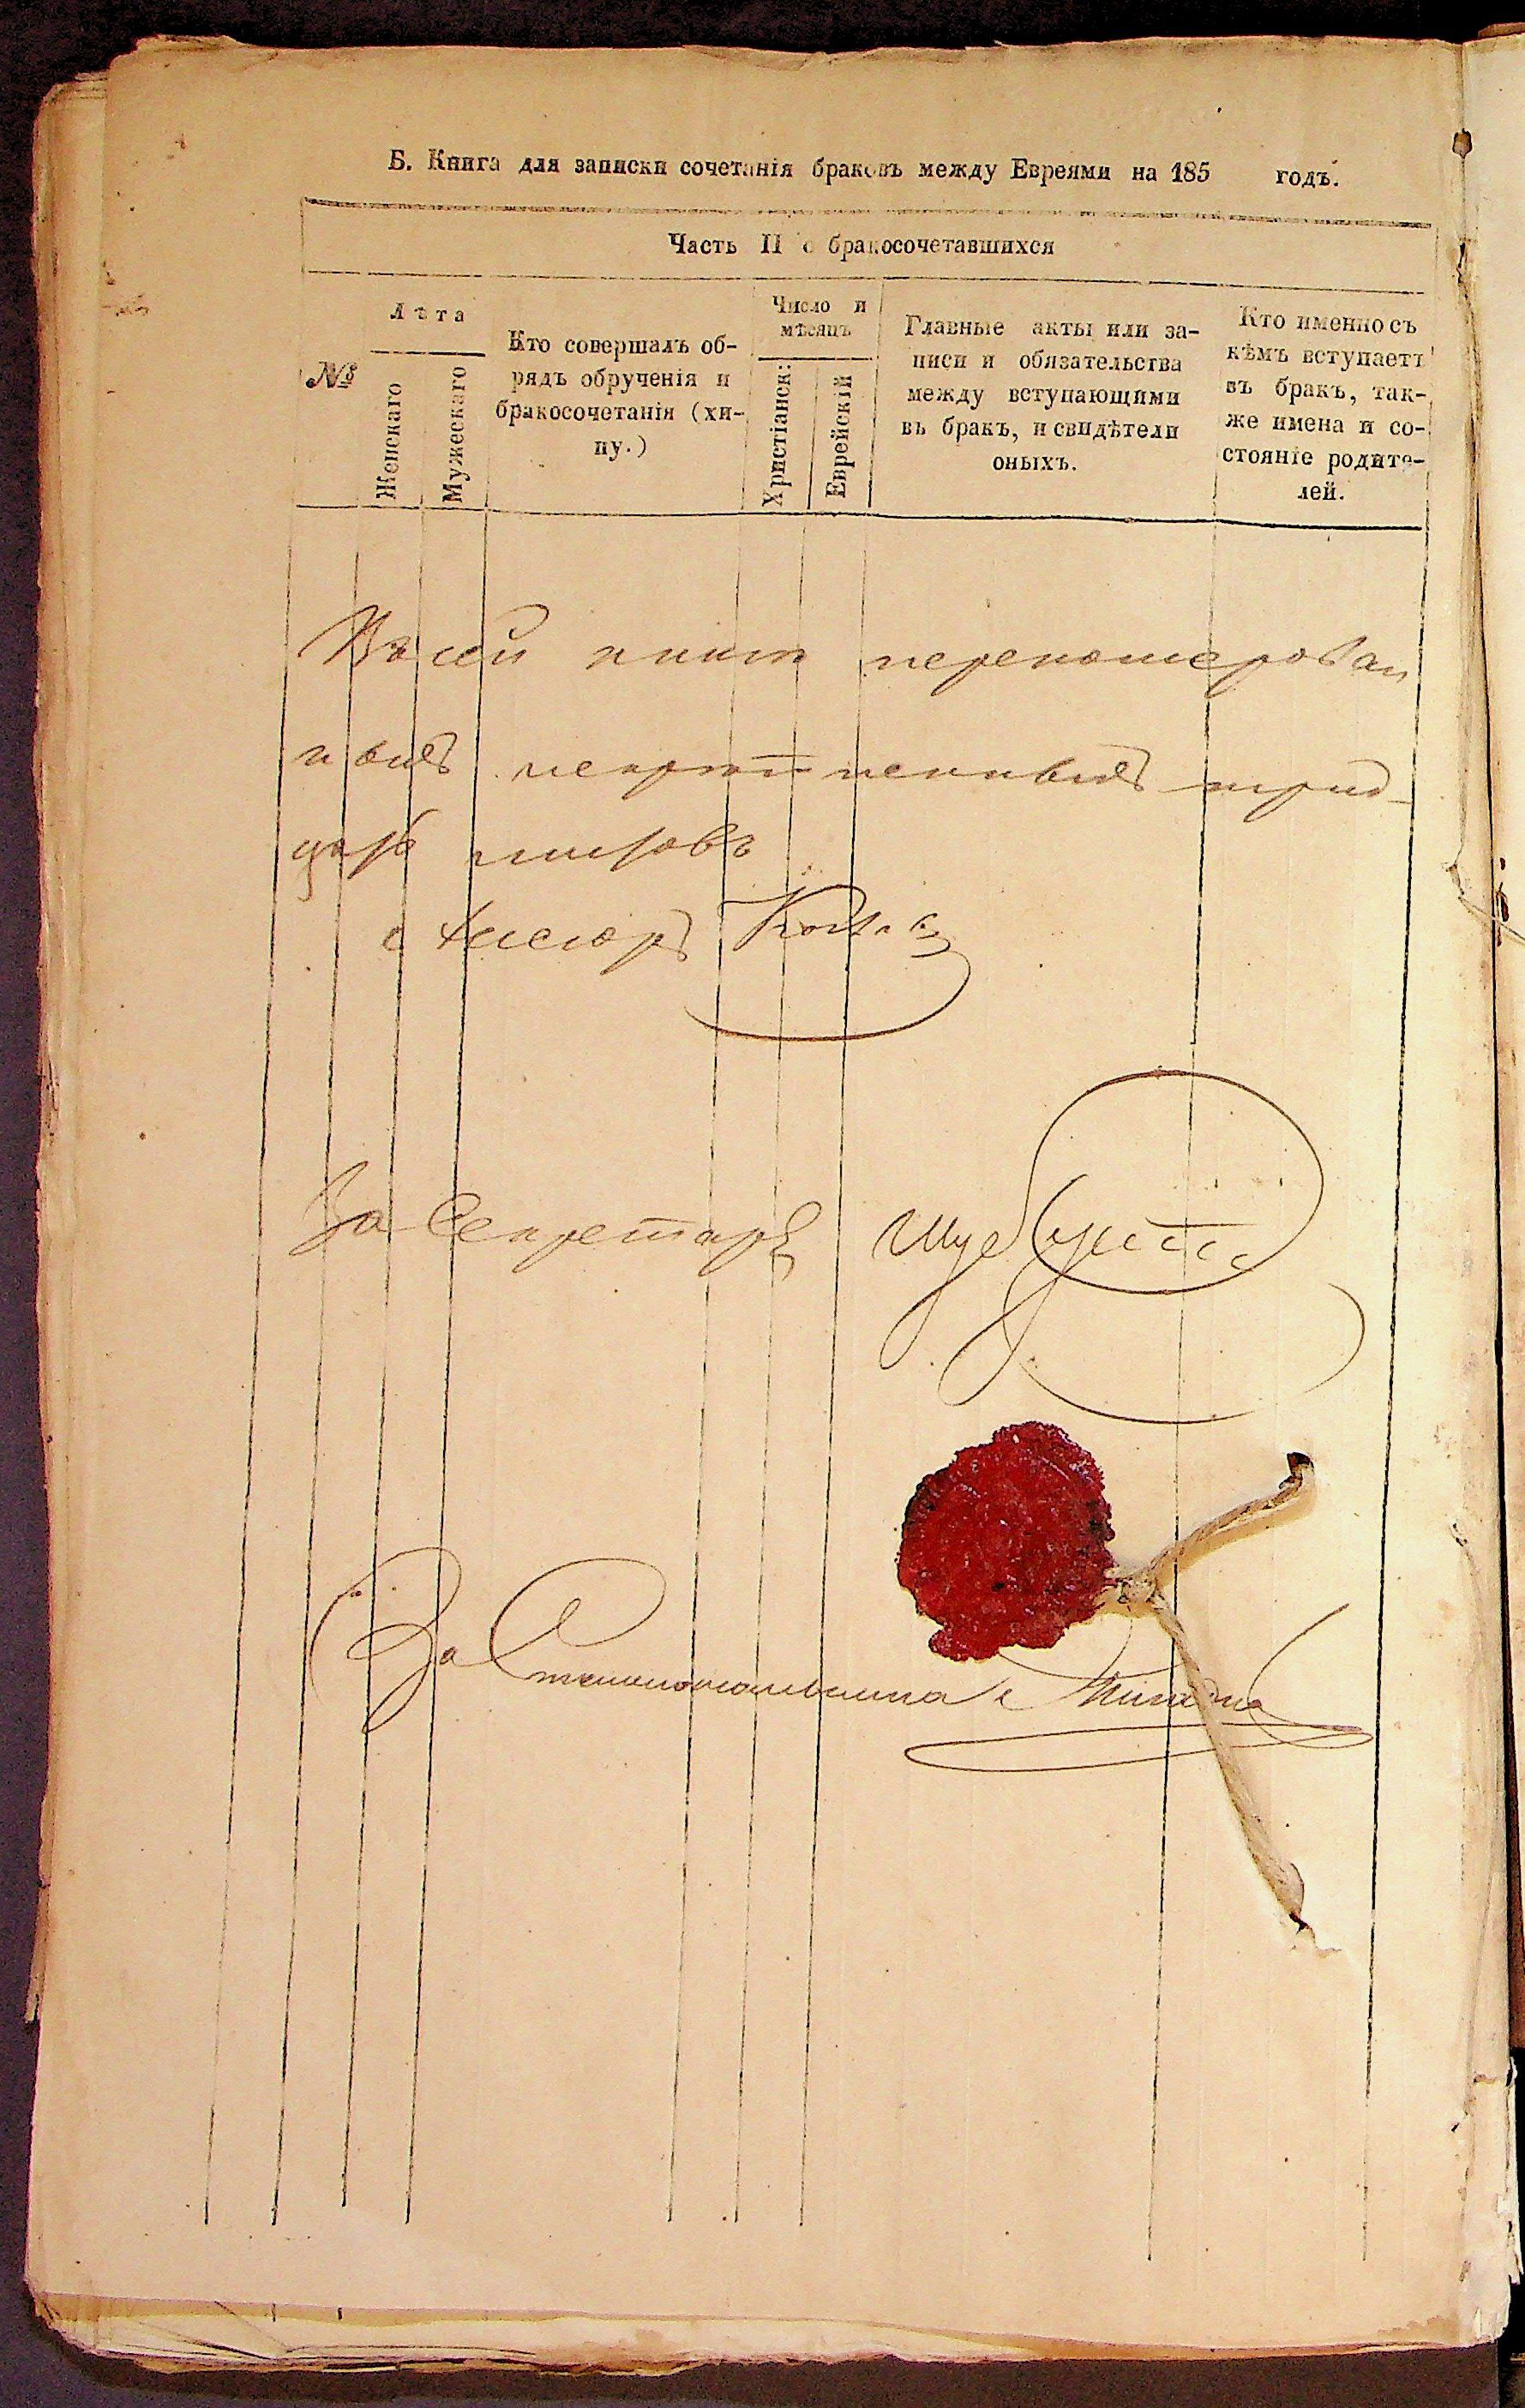 Б. Книга для записки сочетанія браковъ между Евреями на 185 годъ.
Часть II о бракосочетавшихся
№
Лѣта
Женскаго
Мужескаго
Кто совершалъ об-
рядъ обрученія и
бракосочетанія (хи-
пу.)
Число и
мѣсяцъ
Христіанск:
Еврейскій
Главные акты или за-
писи и обязательства
между вступающими
въ бракъ, и свидѣтели
оныхъ.
Кто именно съ
кѣмъ вступаетъ
въ бракъ, так-
же имена и со-
стояніе родите-
лей.
Въ сей книгѣ переномерован
ныхъ трид-
цать листовъ
За Секретаря
За Столоначальника